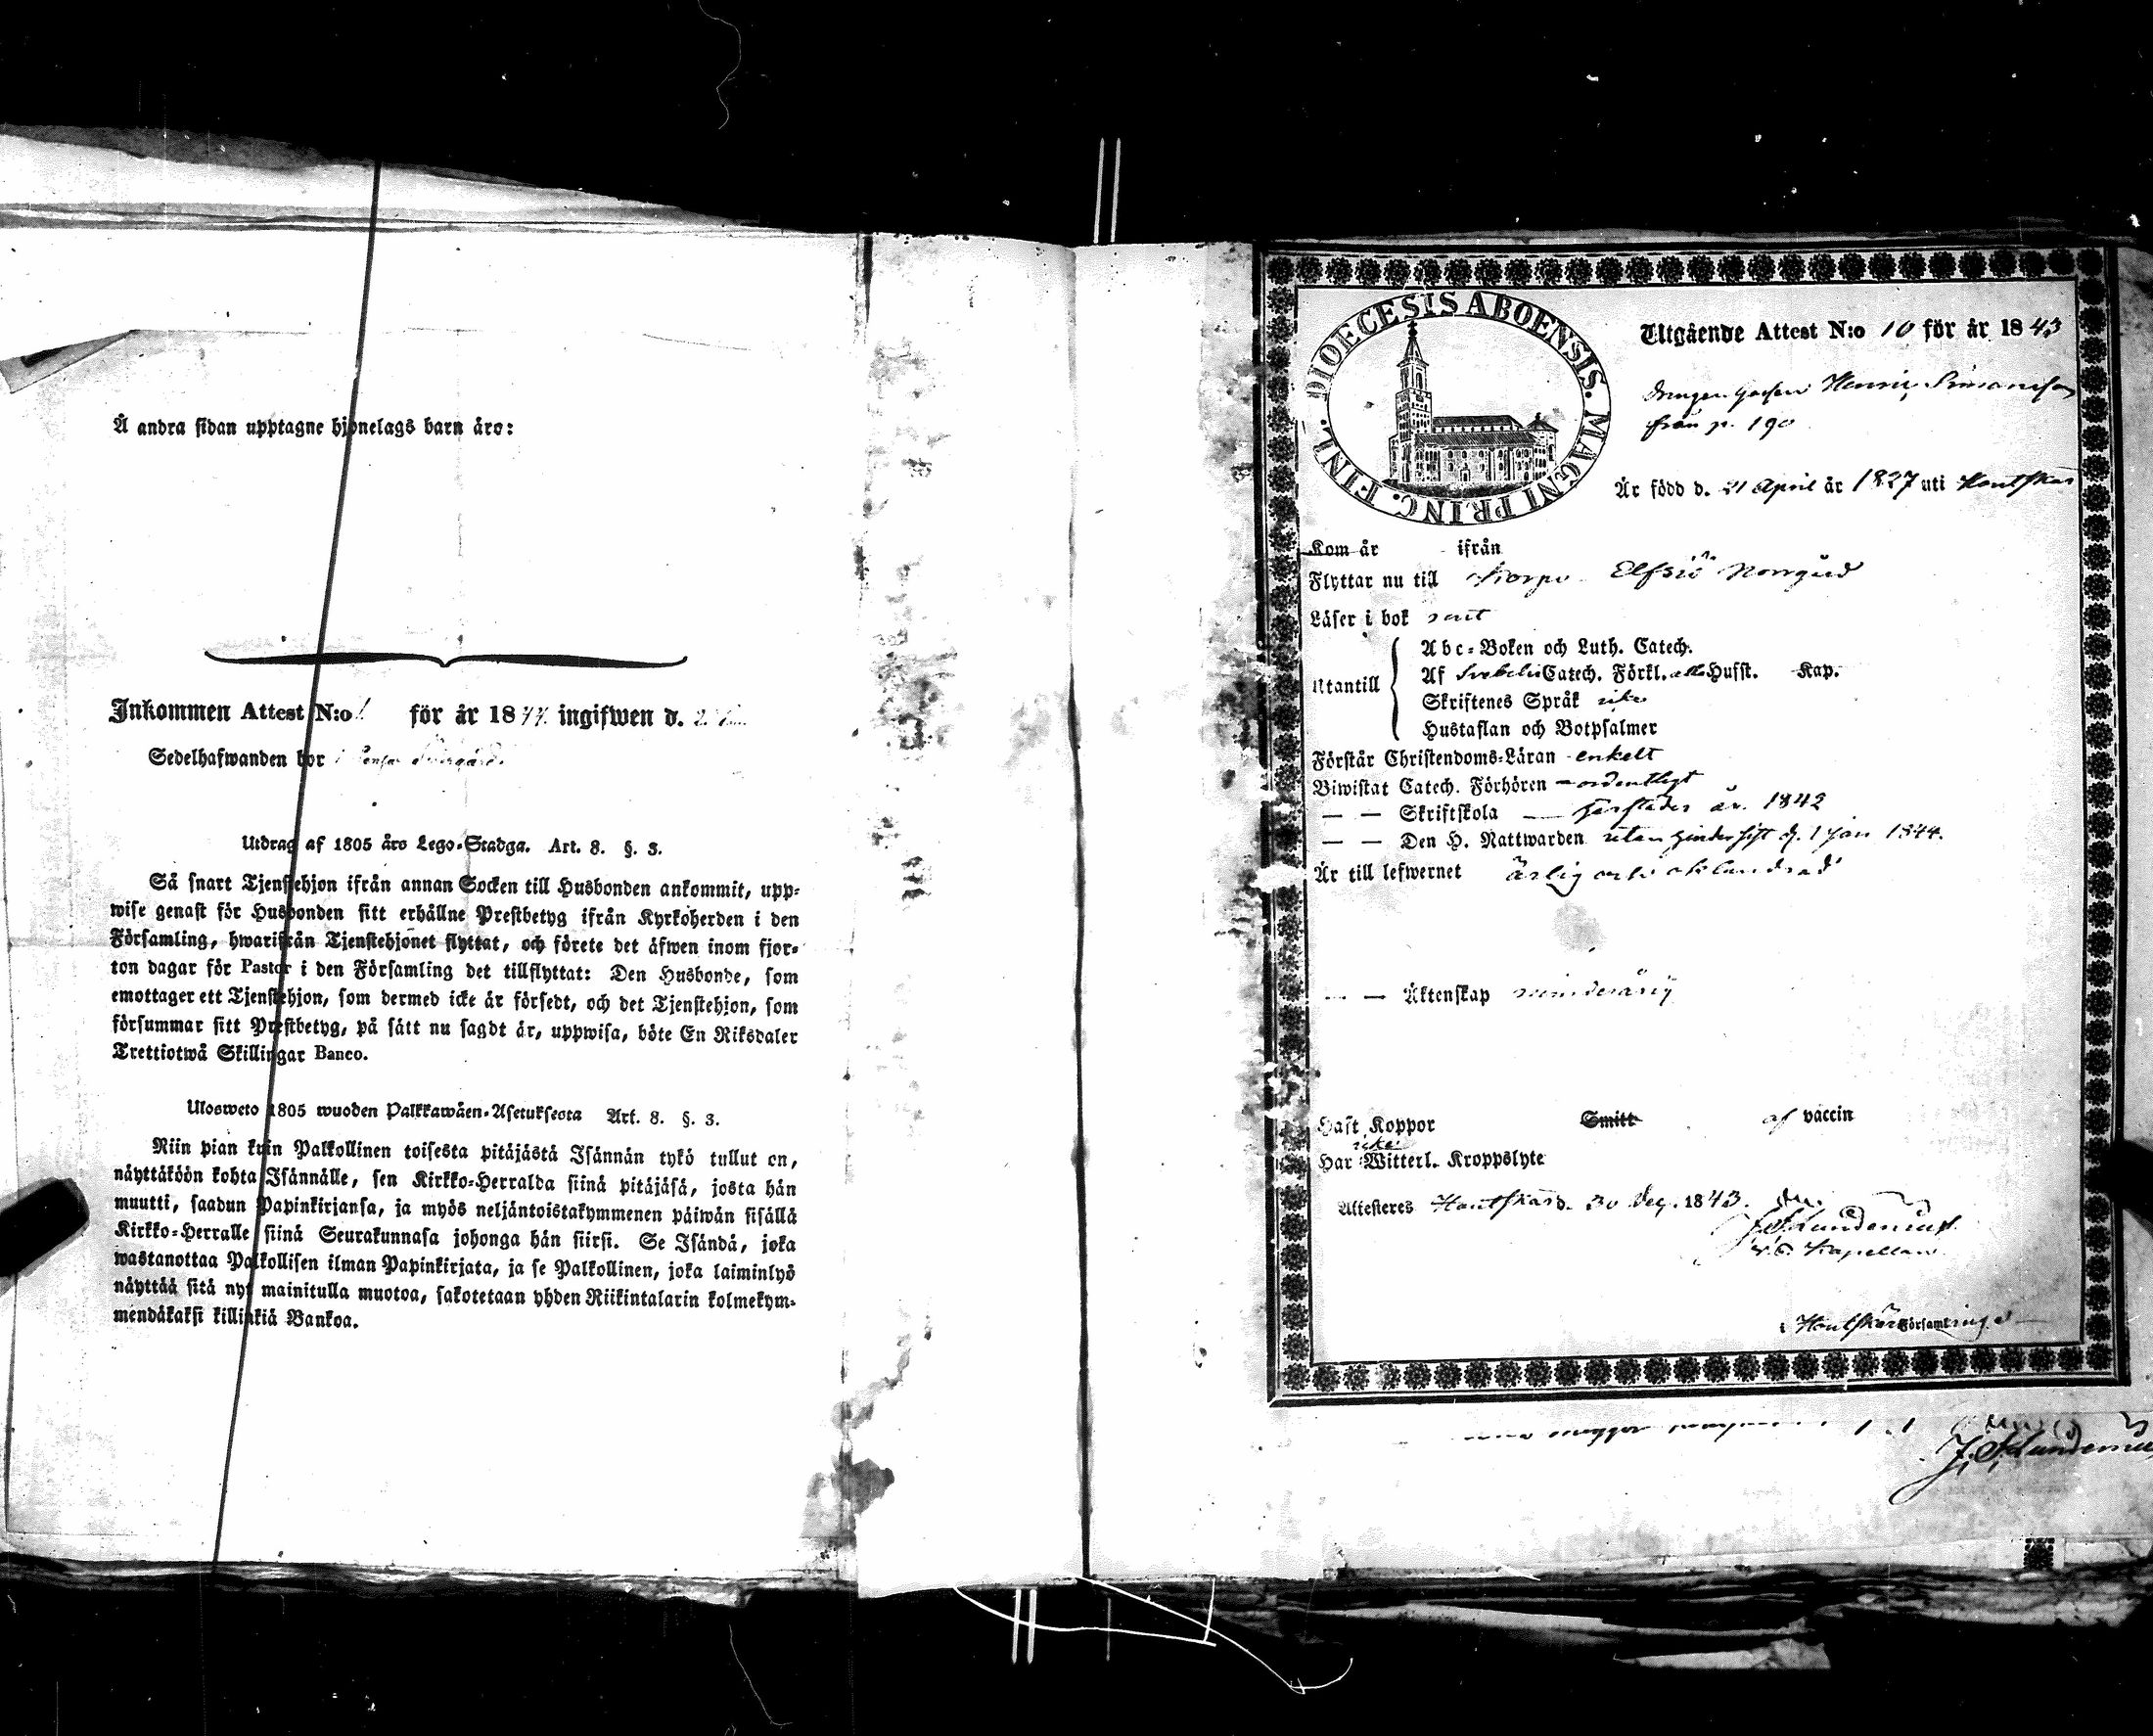 Å andra sidan upptagne hjonelags barn äro:
Inkommen Attest N:o 1 för år 1844 ingifwen d. 2
Sedelhafwanden bor i
Utdrag af 1805 års Lego-Stadga. Art. 8. §. 3.
Så snart Tjenstehjon ifrån annan Socken till Husbonden ankommit, upp-
wise genast för Husbonden sitt erhållne Prestbetyg ifrån Kyrkoherden i den
Församling, hwarifrån Tjenstehjonet flyttat, och förete det äfwen inom fjor-
ton dagar för Pastor i den Församling det tillflyttat: Den Husbonde, som
emottager ett Tjenstehjon, som dermed icke är försedt, och det Tjenstehjon, som
försummar sitt Prestbetyg, på sätt nu sagdt är, uppwisa, böte En Riksdaler
Trettiotwå Skillingar Banco.
Ulosweto 1805 wuoden Palkkawäen-Asetuksesta Art. 8. §. 3.
Niin pian kuin Palkollinen toisesta pitäjästä Isännän tykö tullut on,
näyttäköön kohta Isännälle, sen Kirkko-Herralda siinä pitäjäsä, josta hän
muutti, saadun Papinkirjansa, ja myös neljäntoistakymmenen päiwän sisällä
Kirkko-Herralle siinä Seurakunnasa johonga hän siirsi. Se Isändä, joka
wastanottaa Palkollisen ilman Papinkirjata, ja se Palkollinen, joka laiminlyö
näyttää sitä nyt mainitulla muotoa, sakotetaan yhden Riikintalarin kolmekym-
mendäkaksi killinkiä Bankoa.
DIOECESIS ABOENSIS. MAGNI PRINC. FINL.
Utgående Attest N:o 10 för år 1843
Drengen Gossen Henric Simonsson
från p. 190
Är född d. 21 April år 1827 uti Houtskär
Kom år ifrån
Flyttar nu till Korpo Elfsiö Norrgård
Läser i bok rent
Utantill
Abc-Boken och Luth. Catech.
Af Svebelii Catech. Förkl. alla Hufst. Kap.
Skriftenes Språk icke
Hustaflan och Botpsalmer
Förstår Christendoms-Läran enkelt
Biwistat Catech. Förhören ordentligt
— — Skriftskola — härstädes år 1842
— — Den H. Nattwarden utan hinder sist d. 1 Jan 1844.
Är till lefwernet ärlig och oklandrad
— — Äktenskap minderårig
Haft Koppor Smitt af vaccin
icke
Har Witterl. Kroppslyte
Attesteres Houtskär d. 30 Dec. 1843.
J. S. Lundenius
v. Kapellan
i Houtskärs Församlings
J. S. Lundenius